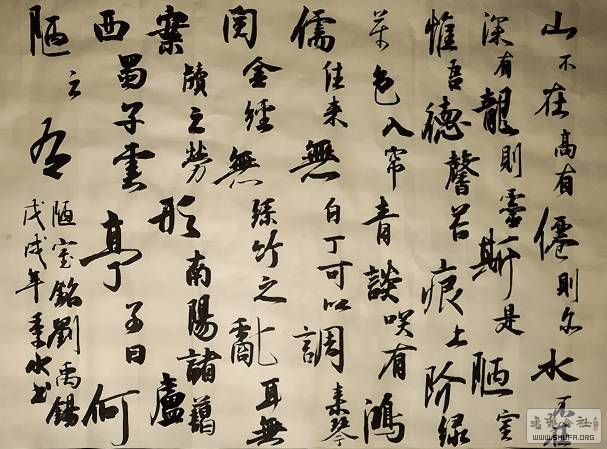 山不在高有僊則名水不在
深有龍則靈斯是陋室
惟吾德馨苔痕上阶绿
草色入帘青談咲有鴻
儒往来無白丁可以調素琴
閱金經無絲竹之亂耳無
案牘之勞形南陽諸葛廬
西蜀子雲亭子曰何
陋之有
陋室銘劉禹錫
戊戌年季水书
书法公社
WWW.SHUFA.ORG